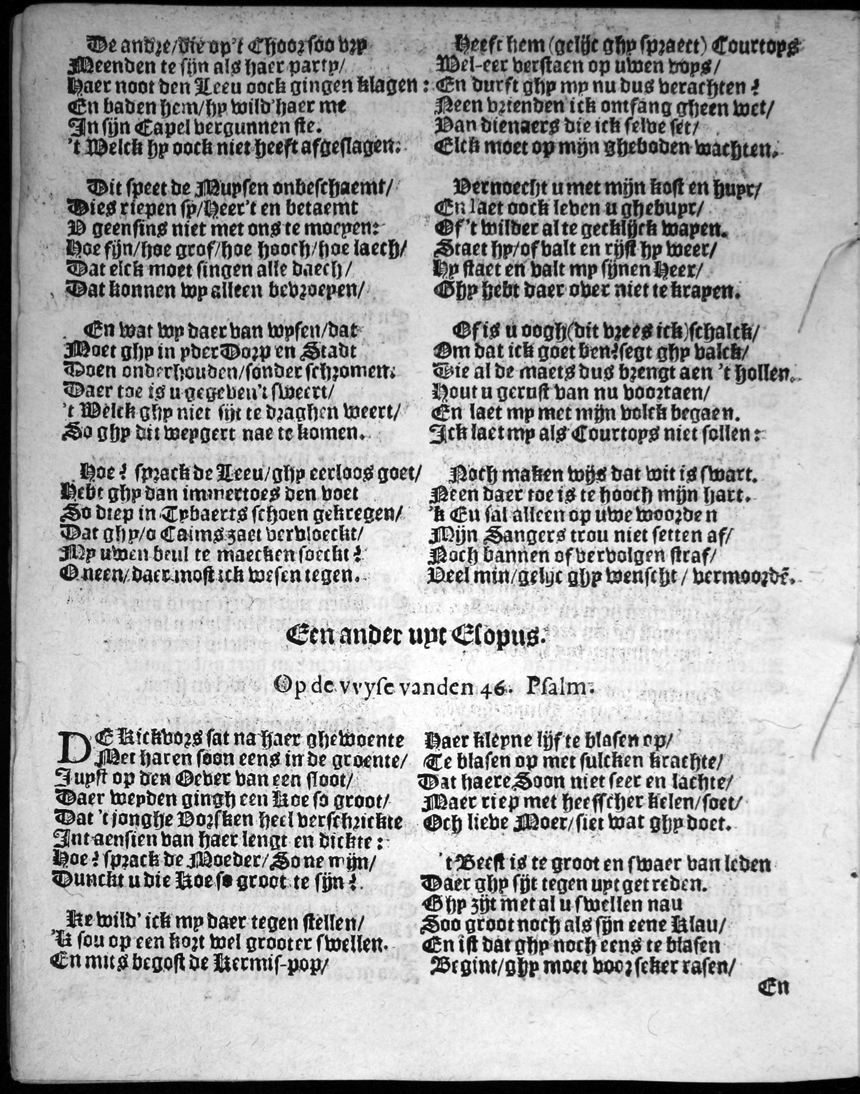 De andre/die op't Choor soo vry
Meenden te sijn als haer party/
Haer noot den Leeu oock gingen klagen:
En baden hem/hy wild' haer me
In sijn Capel vergunnen ste.
't Welck hy oock niet heeft afgeslagen.
Dit speet de Muysen onbeschaemt/
Dies riepen sy/Heer't en betaemt
V geensins niet met ons te moeyen:
Hoe fijn/hoe grof/hoe hooch/hoe laech/
Dat elck moet singen alle daech/
Dat konnen wy alleen bevroeyen/
En wat wy daer van wysen/dat
Moet ghy in yder Dorp en Stadt
Doen onderhouden/sonder schromen:
Daer toe is u gegeven't sweert/
't Welck ghy niet sijt te draghen weert/
So ghy dit weygert nae te komen.
Hoe? sprack de Leeu/ghy eerloos goet/
Hebt ghy dan immertoes den voet
So diep in Tybaerts schoen gekregen/
Dat ghy/o Caims zaet vervloeckt/
My uwen beul te maecken soeckt?
O neen/daer most ick wesen tegen.
Heeft hem (gelijc ghy spraect) Courtoys
Wel-eer verstaen op uwen voys/
En durft ghy my nu dus verachten?
Neen vrienden ick ontfang gheen wet/
Van dienaers die ick selve set/
Elck moet op mijn gheboden wachten.
Vernoecht u met mijn kost en huyr/
En laet oock leven u ghebuyr/
Of't wilder al te gecklijck wayen.
Staet hy/of valt en rijst hy weer/
Hy staet en valt my sijnen Heer/
Ghy hebt daer over niet te krayen.
Of is u oogh (dit vrees ick) schalck/
Om dat ick goet ben? segt ghy valck/
Die al de maets dus brengt aen 't hollen.
Hout u gerust van nu voortaen/
En laet my met mijn volck begaen.
Ick laet my als Courtoys niet sollen:
Noch maken wijs dat wit is swart.
Neen daer toe is te hooch mijn hart.
'k En sal alleen op uwe woorden
Mijn Sangers trou niet setten af/
Noch bannen of vervolgen straf/
Veel min/gelijc ghy wenscht/ vermoordē.
Een ander uyt Esopus.
Op de vvyse vanden 46. Psalm.
DE Kickvors sat na haer ghewoente
Met haren soon eens in de groente/
Juyst op den Oever van een sloot/
Daer weyden gingh een Koe so groot/
Dat 't jonghe Vorsken heel verschrickte
Int aensien van haer lengt en dickte:
Hoe? sprack de Moeder/Sone mijn/
Dunckt u die Koe so groot te sijn?
Ke wild' ick my daer tegen stellen/
'K sou op een kort wel grooter swellen.
En mits begost de Kermis-pop/
Haer kleyne lijf te blasen op/
Te blasen op met sulcken krachte/
Dat haere Soon niet seer en lachte/
Maer riep met heesscher kelen/soet/
Och lieve Moer/siet wat ghy doet.
't Beest is te groot en swaer van leden
Daer ghy sijt tegen uyt getreden.
Ghy zijt met al u swellen nau
Soo groot noch als sijn eene Klau/
En ist dat ghy noch eens te blasen
Begint/ghy moet voorseker rasen/
En